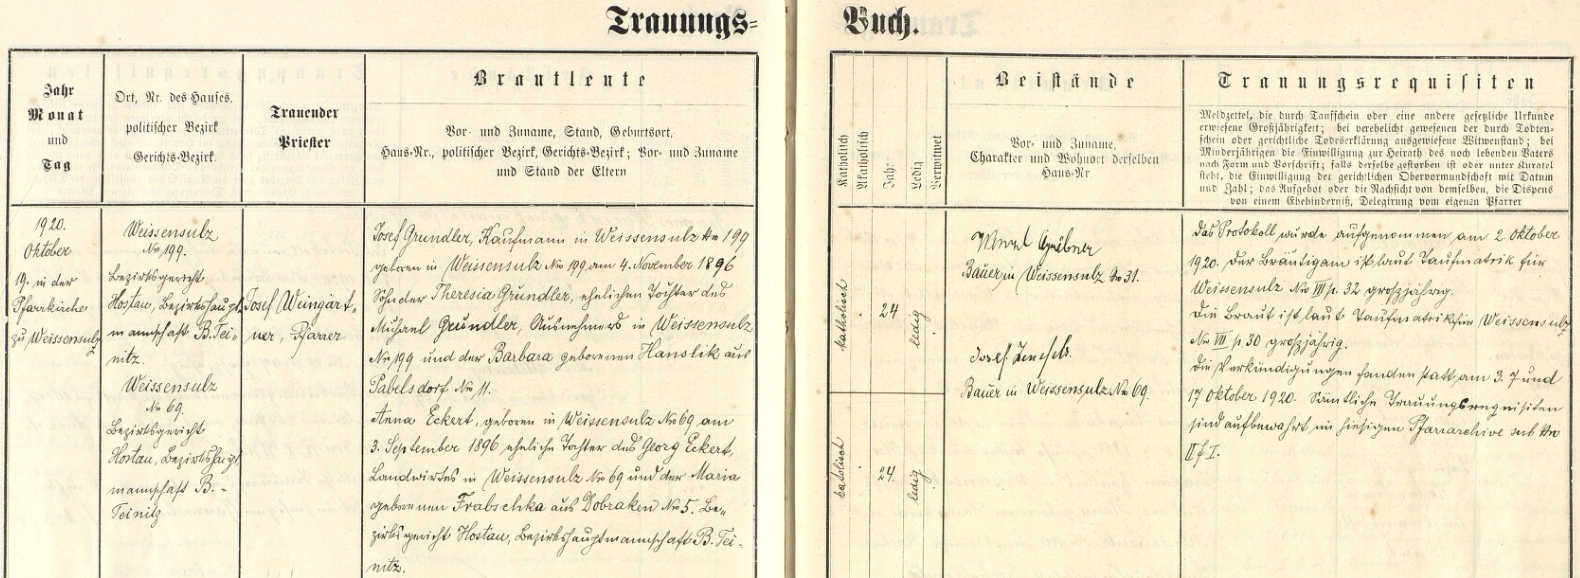 Trauungs-
Buch.
Jahr
Monat
und
Tag
Ort, Nr. des Hauses,
politischer Bezirk
Gerichts-Bezirk
Trauender
Priester
Brautleute
Vor- und Zuname, Stand, Geburtsort,
Haus-Nr., politischer Bezirk, Gerichts-Bezirk; Vor- und Zuname
und Stand der Eltern
Katholisch
Akatholisch
Jahr
Ledig
Verwitwet
Beistände
Vor- und Zuname,
Charakter und Wohnort derselben
Haus-Nr
Trauungsrequisiten
Meldzettel, die durch Taufschein oder eine andere gesetzliche Urkunde
erwiesene Großjährigkeit; bei verehelicht gewesenen der durch Todten-
schein oder gerichtliche Todeserklärung ausgewiesene Witwenstand; bei
Minderjährigen die Einwilligung zur Heirath des noch lebenden Vaters
nach Form und Vorschrift; falls derselbe gestorben ist oder unter Kuratel
steht, die Einwilligung der gerichtlichen Obervormundschaft mit Datum
und Zahl; das Aufgebot oder die Nachsicht von demselben, die Dispens
von einem Ehehinderniß, Delegirung vom eigenen Pfarrer
1920.
Oktober
19. in der
Pfarrkirche
zu Weissensulz
Weissensulz
No 199.
Bezirksgericht
Hostau, Bezirkshaupt-
mannschaft B. Tei-
nitz
Weissensulz
No 69.
Bezirksgericht
Hostau, Bezirkshaupt
mannschaft B. -
Teinitz
Josef Weingärt-
ner, Pfarrer
Josef Grundler, Kaufmann in Weissensulz No 199
geboren in Weissensulz No 199 am 4. November 1896
Sohn der Theresia Grundler, ehelichen Tochter des
Michael Grundler, Ausnehmers in Weissensulz
No 199 und der Barbara geborenen Hanslik aus
Pabelsdorf No 11.
Anna Eckert, geboren in Weissensulz No 69 am
3. September 1896 eheliche Tochter des Georg Eckert,
Landwirtes in Weissensulz No 69 und der Maria
geborenen Frabschka aus Dobraken No 5. Be-
zirksgericht Hostau, Bezirkshauptmannschaft B. Tei-
nitz.
katholisch
24
ledig
katolisch
24.
ledig
Bauer in Weissensulz No 31.
Josef
Bauer in Weissensulz No 69.
Das Protokoll wurde aufgenommen am 2 Oktober
1920. Der Bräutigam ist laut Taufmatrik für
Weissensulz No VII p. 32 grossjährig.
Die Braut ist laut Taufmatrik für Weissensulz
No VII p. 30 grossjährig.
Die Verkündigungen fanden statt am 3. 7 und
17 Oktober 1920. Sämtliche Trauungsrequisiten
sind aufbewahrt im hiesigen Pfarrarchive sub No